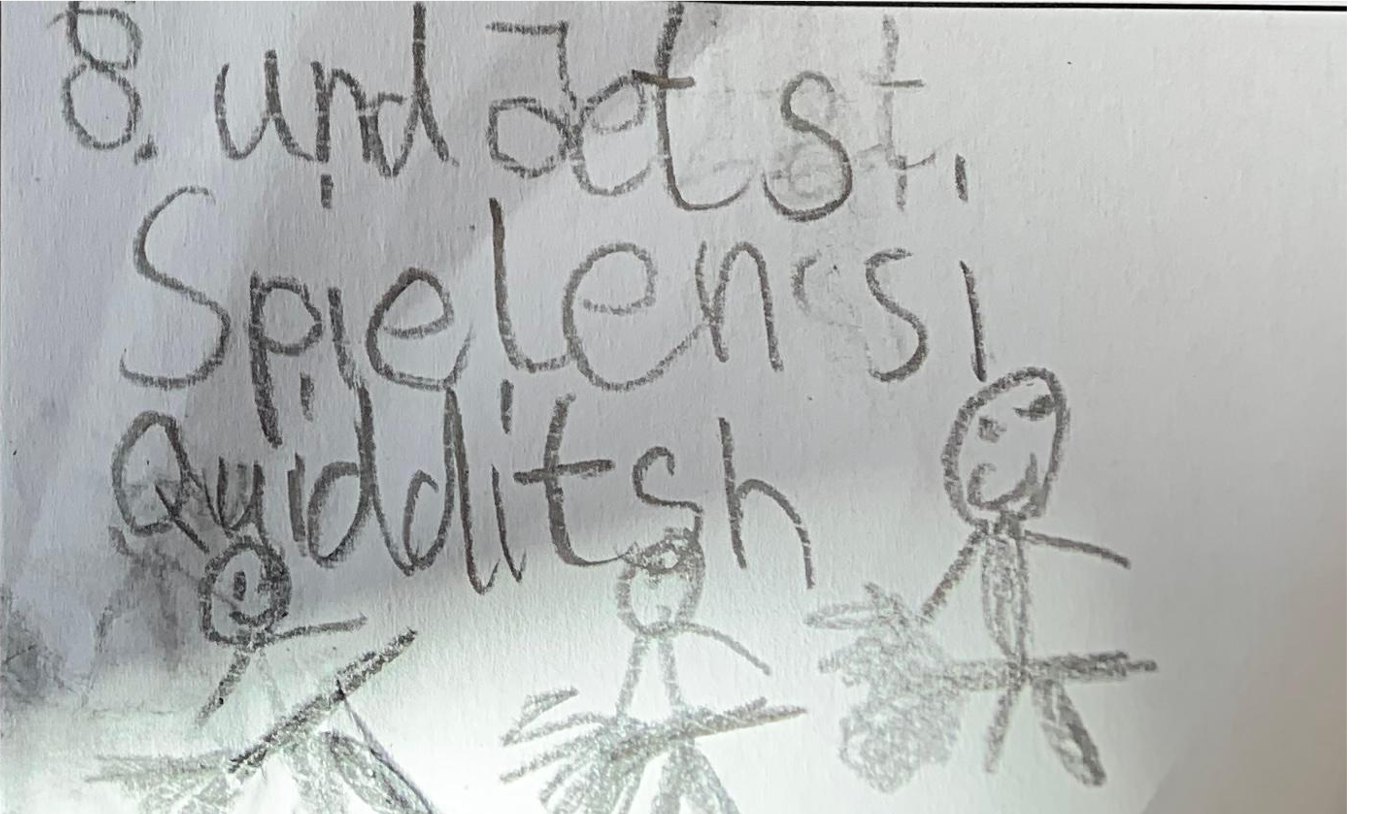 8. und Jetst
Spielen si
Quidditsh